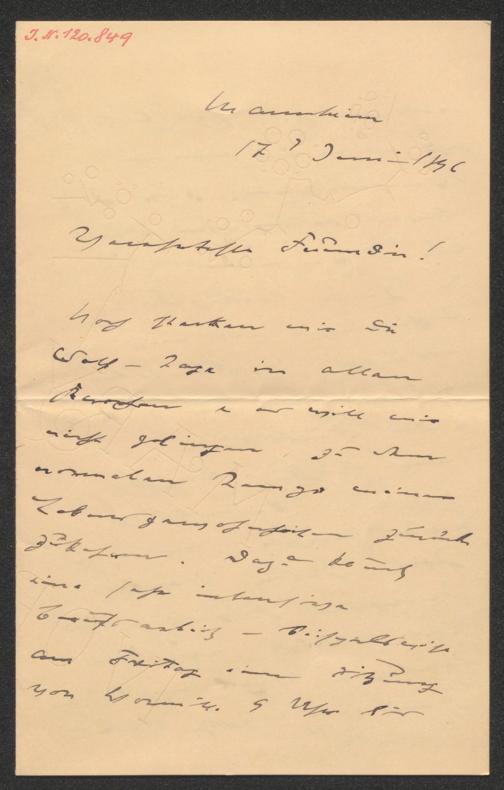 I.N. 120.849
Mannheim
17. Juni 1896
Verehrteste Freundin!
Noch stecken mir die
Wolf-Tage in allen
Knochen u. es will mir
nicht gelingen zu dem
normalen Range meiner
zurück
zukehren. Dazu kommt
eine sehr intensive
Berufsarbeit – beispielsweise
am Freitag eine Sitzung
von Vormitt. 9 Uhr bis